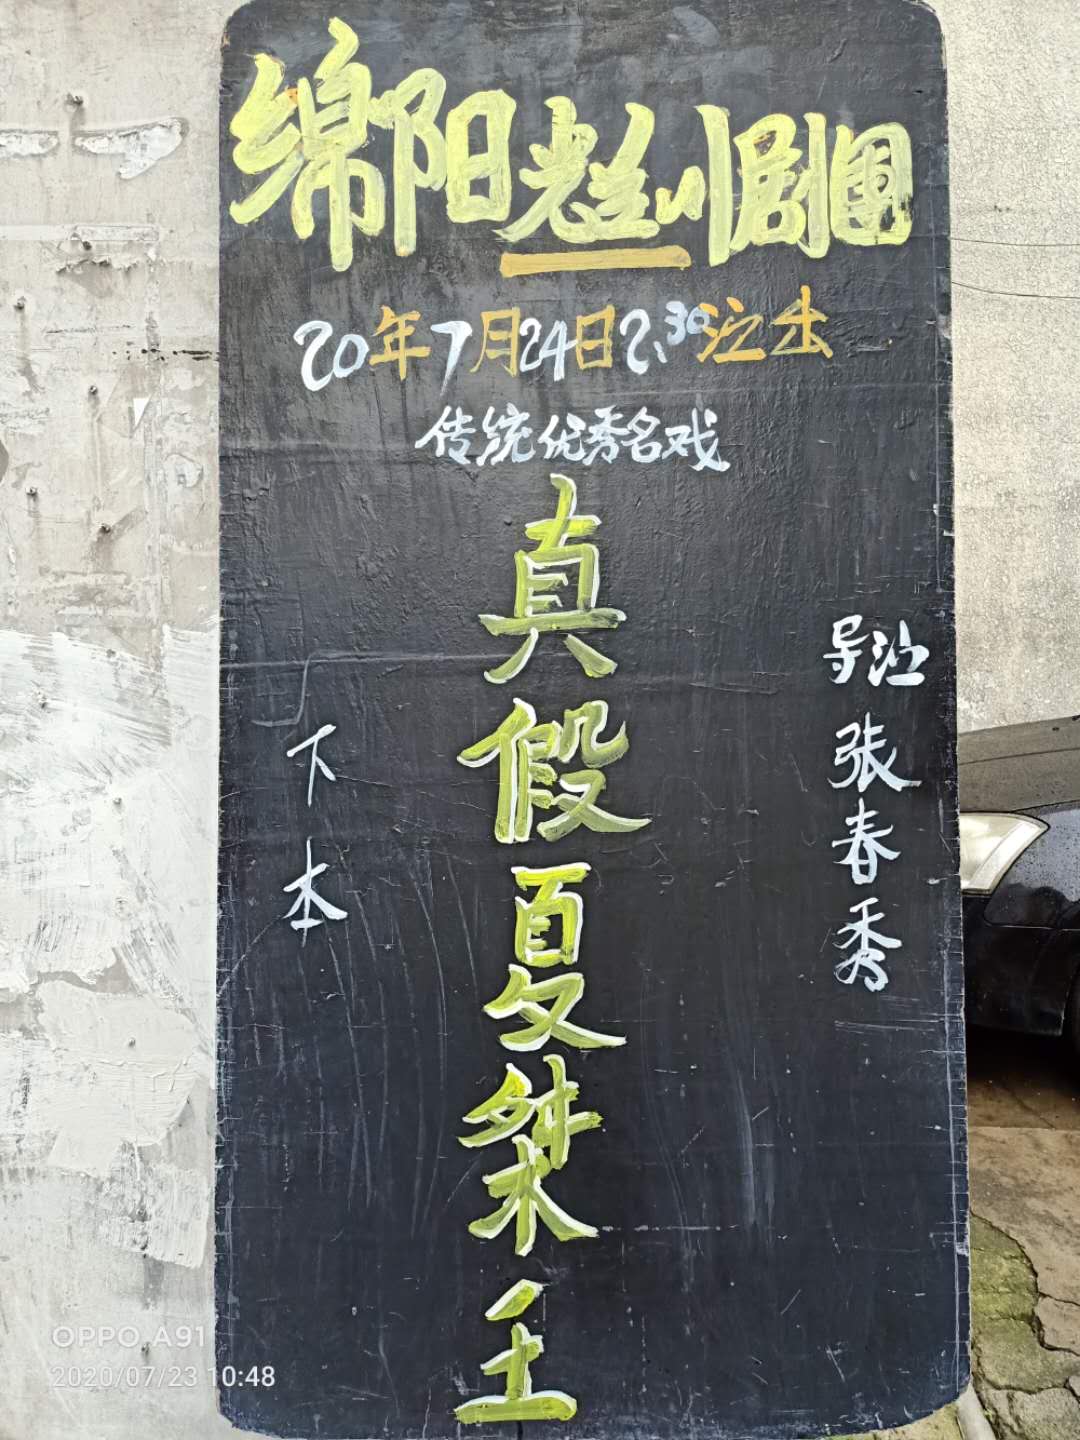 绵阳川剧團
20年7月24日2:30演出
传统优秀名戏
真假夏桀王
导演 张春秀
下本
OPPO A91
2020/07/23 10:48